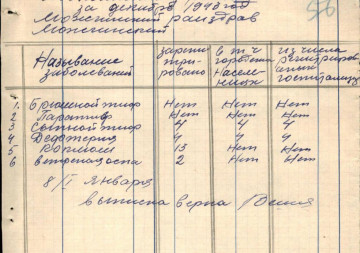 за декабрь 1943 год
56
Можгинский райздрав
Можгинский
Называние заболеваний
зарегистрировано
в т ч городское население
из числа регистрирован госпитализ
1. Брюшной тиф Нет Нет Нет
2 Паратиф Нет Нет Нет
3 Сыпной тиф 4 4 4
4 Дезентерия 4 4 4
5 Кормаш 13 Нет Нет
6 ветренаяоспа 2 Нет Нет
8/I января
выписка верна